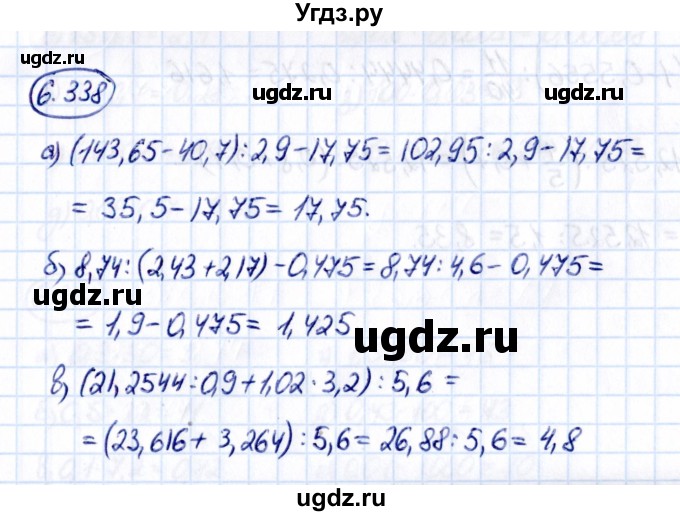 Угдз.ру
6.338
ugdz.ru ugdz.ru
а) (143,65-40,7):2,9-17,75=102,95:2,9-17,75=
= 35,5-17,75= 17,75.
ugdz.ru
б) 8,74:(2,43+2,17)-0,475=8,74:4,6-0,475=
ugdz.ru
= 1,9-0,475= 1,425
ugdz.ru
в) (21,2544:0,9+1,02·3,2):5,6=
=(23,616+3,264):5,6=26,88:5,6=4,8
ugdz.ru ugdz.ru
ugdz.ru